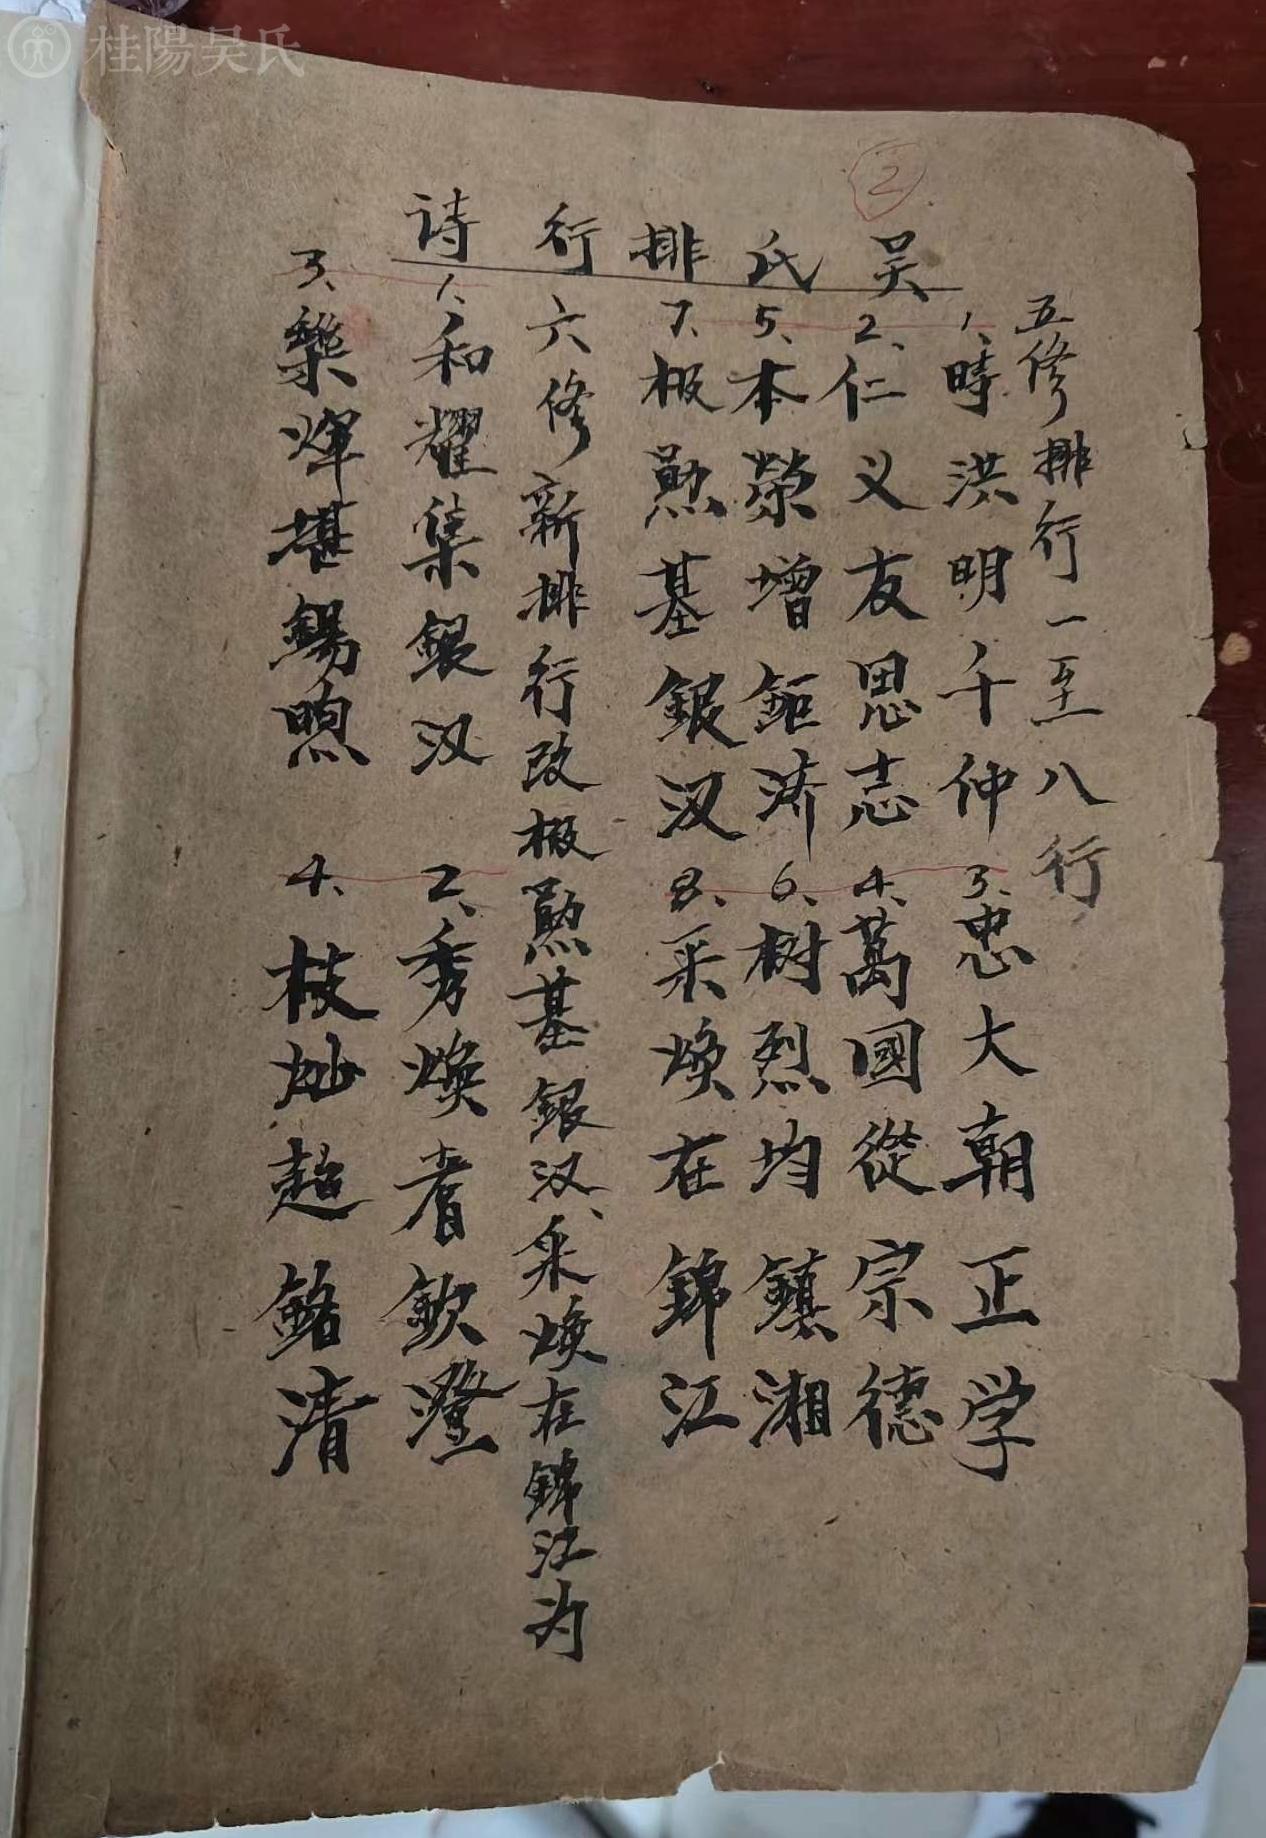 桂陽吴氏
2
吴氏排行诗
五修排行一至八行
1、時洪明千仲 3、忠大朝正学
2、仁义友思志 4、萬國從宗德
5、本荣增鉅济 6、树烈均鎮湘
7、极勲基銀汉 8、采焕在錦江
六修新排行改极勲基銀汉、采焕在錦江为
1、和耀集銀汉 2、秀焕着欽澄
3、樂輝堪錫煦 4、枝灿超銘清